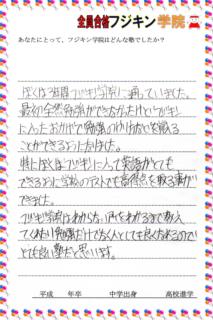 全員合格フジキン学院
あなたにとって、フジキン学院はどんな塾でしたか？
ぼくは 間フジキン学院に通っていました。
最初全然勉強ができなかったけどフジキン
に入ったおかげで勉強の を取る
ことができるようになりました。
特にぼくはフジキンに入って英語がとても
できるようになり学校のテストでも高得点を取る事が
できました。
フジキン学院はわからない所をわかるまで教え
てくれたり勉強だけでなく人としても良くなれるので
とても良い塾だと思います。
平成 年卒 中学出身 高校進学